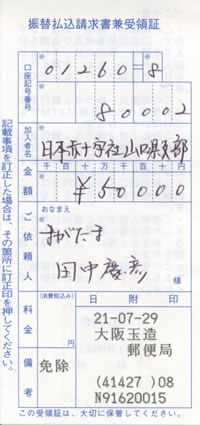 振替払込請求書兼受領証
口座記号番号
01260=8
80002
加入者名
日本赤十字社山口県支部
金額
千百十万千百十円
¥50000
ご依頼人
おなまえ
まがたま
田中慶彦
様
料金
(消費税込み)
円
日附印
21-07-29
大阪玉造
郵便局
備考
免除
(41427 )08
N91620015
記載事項を訂正した場合は、その箇所に訂正印を押してください。
この受領証は、大切に保管してください。